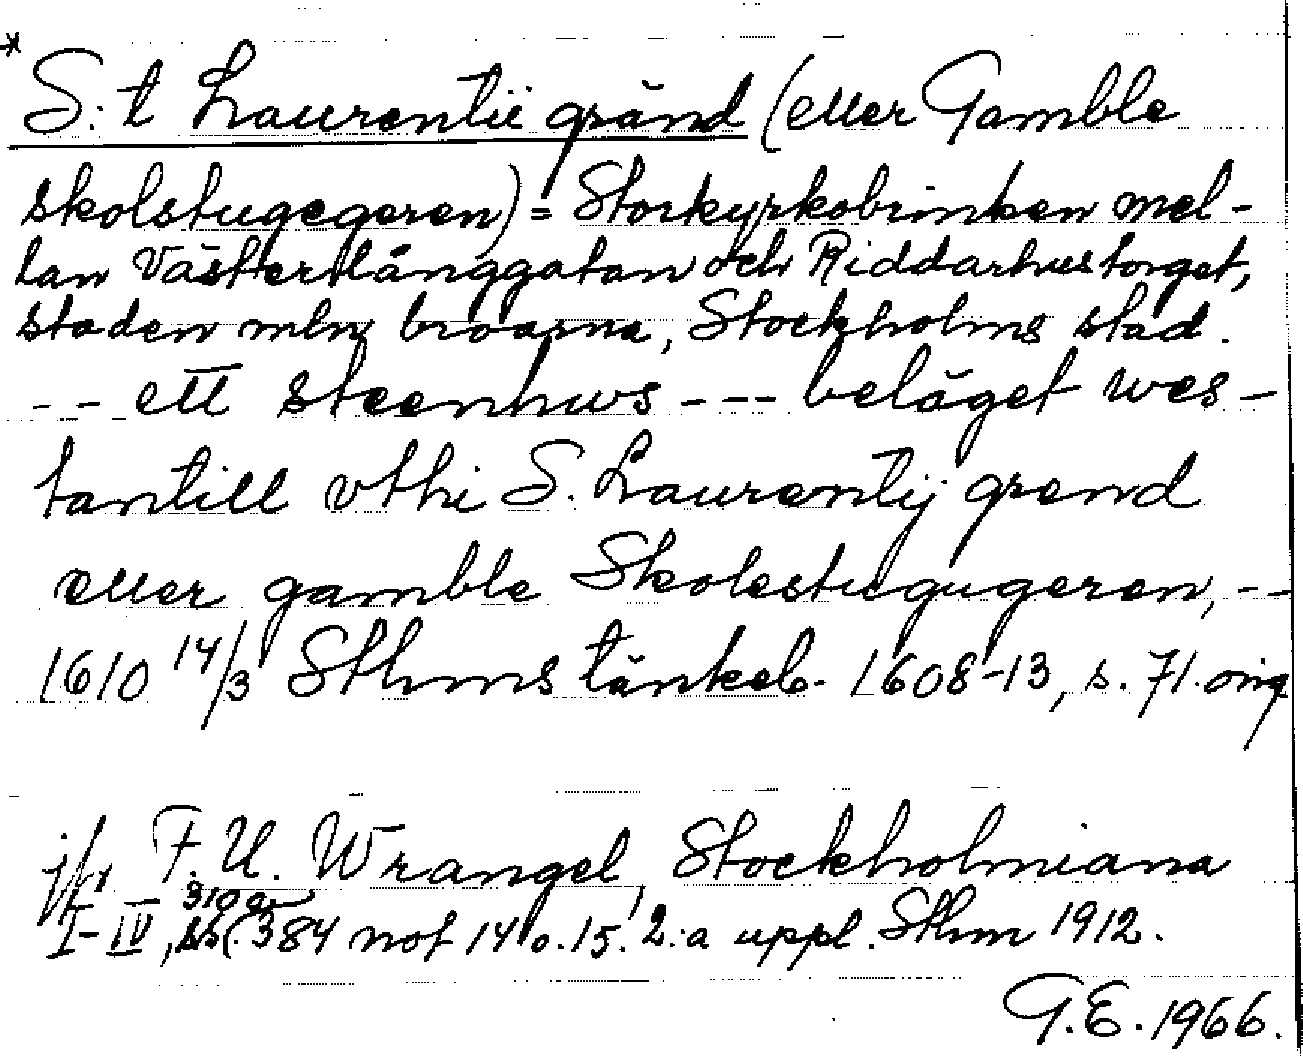 *
S:t Laurentii gränd (eller Gamble
skolstugegeren) = Storkyrkobrinken mel-
lan Västerlånggatan och Riddarhustorget,
staden mln broarna, Stockholms stad.
-- ett steenhws --- beläget wes-
tantill vthi S. Laurentij grend
eller gamble Skolestugugeren, --
1610 14/3 Sthms tänkeb. 1608-13, s. 71. orig
jfr F. U. Wrangel, Stockholmiana
310 av
I-IV, s. 384 not 14 o. 15. 2:a uppl. Sthm 1912.
G.E. 1966.